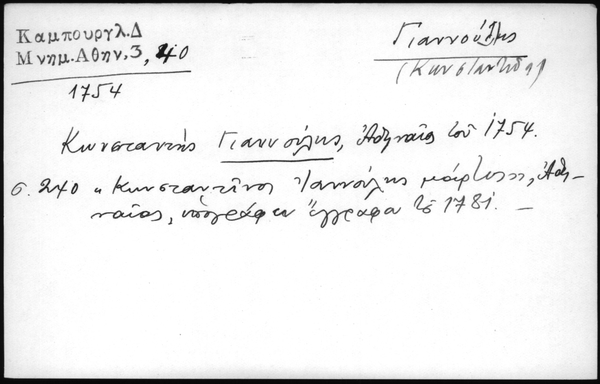 Καμπουργλ.Δ
Μνημ.Αθην.3, 240
1754
Γιαννούλης
(Κωνσταντής)
Κωνσταντής Γιαννούλης, Ἀθηναῖος τοῦ 1754.
σ. 240 « Κωνσταντῖνος Γιαννούλης μάρτυς», Ἀθη-
ναῖος, ὑπογράφει ἔγγραφα τοῦ 1781. —